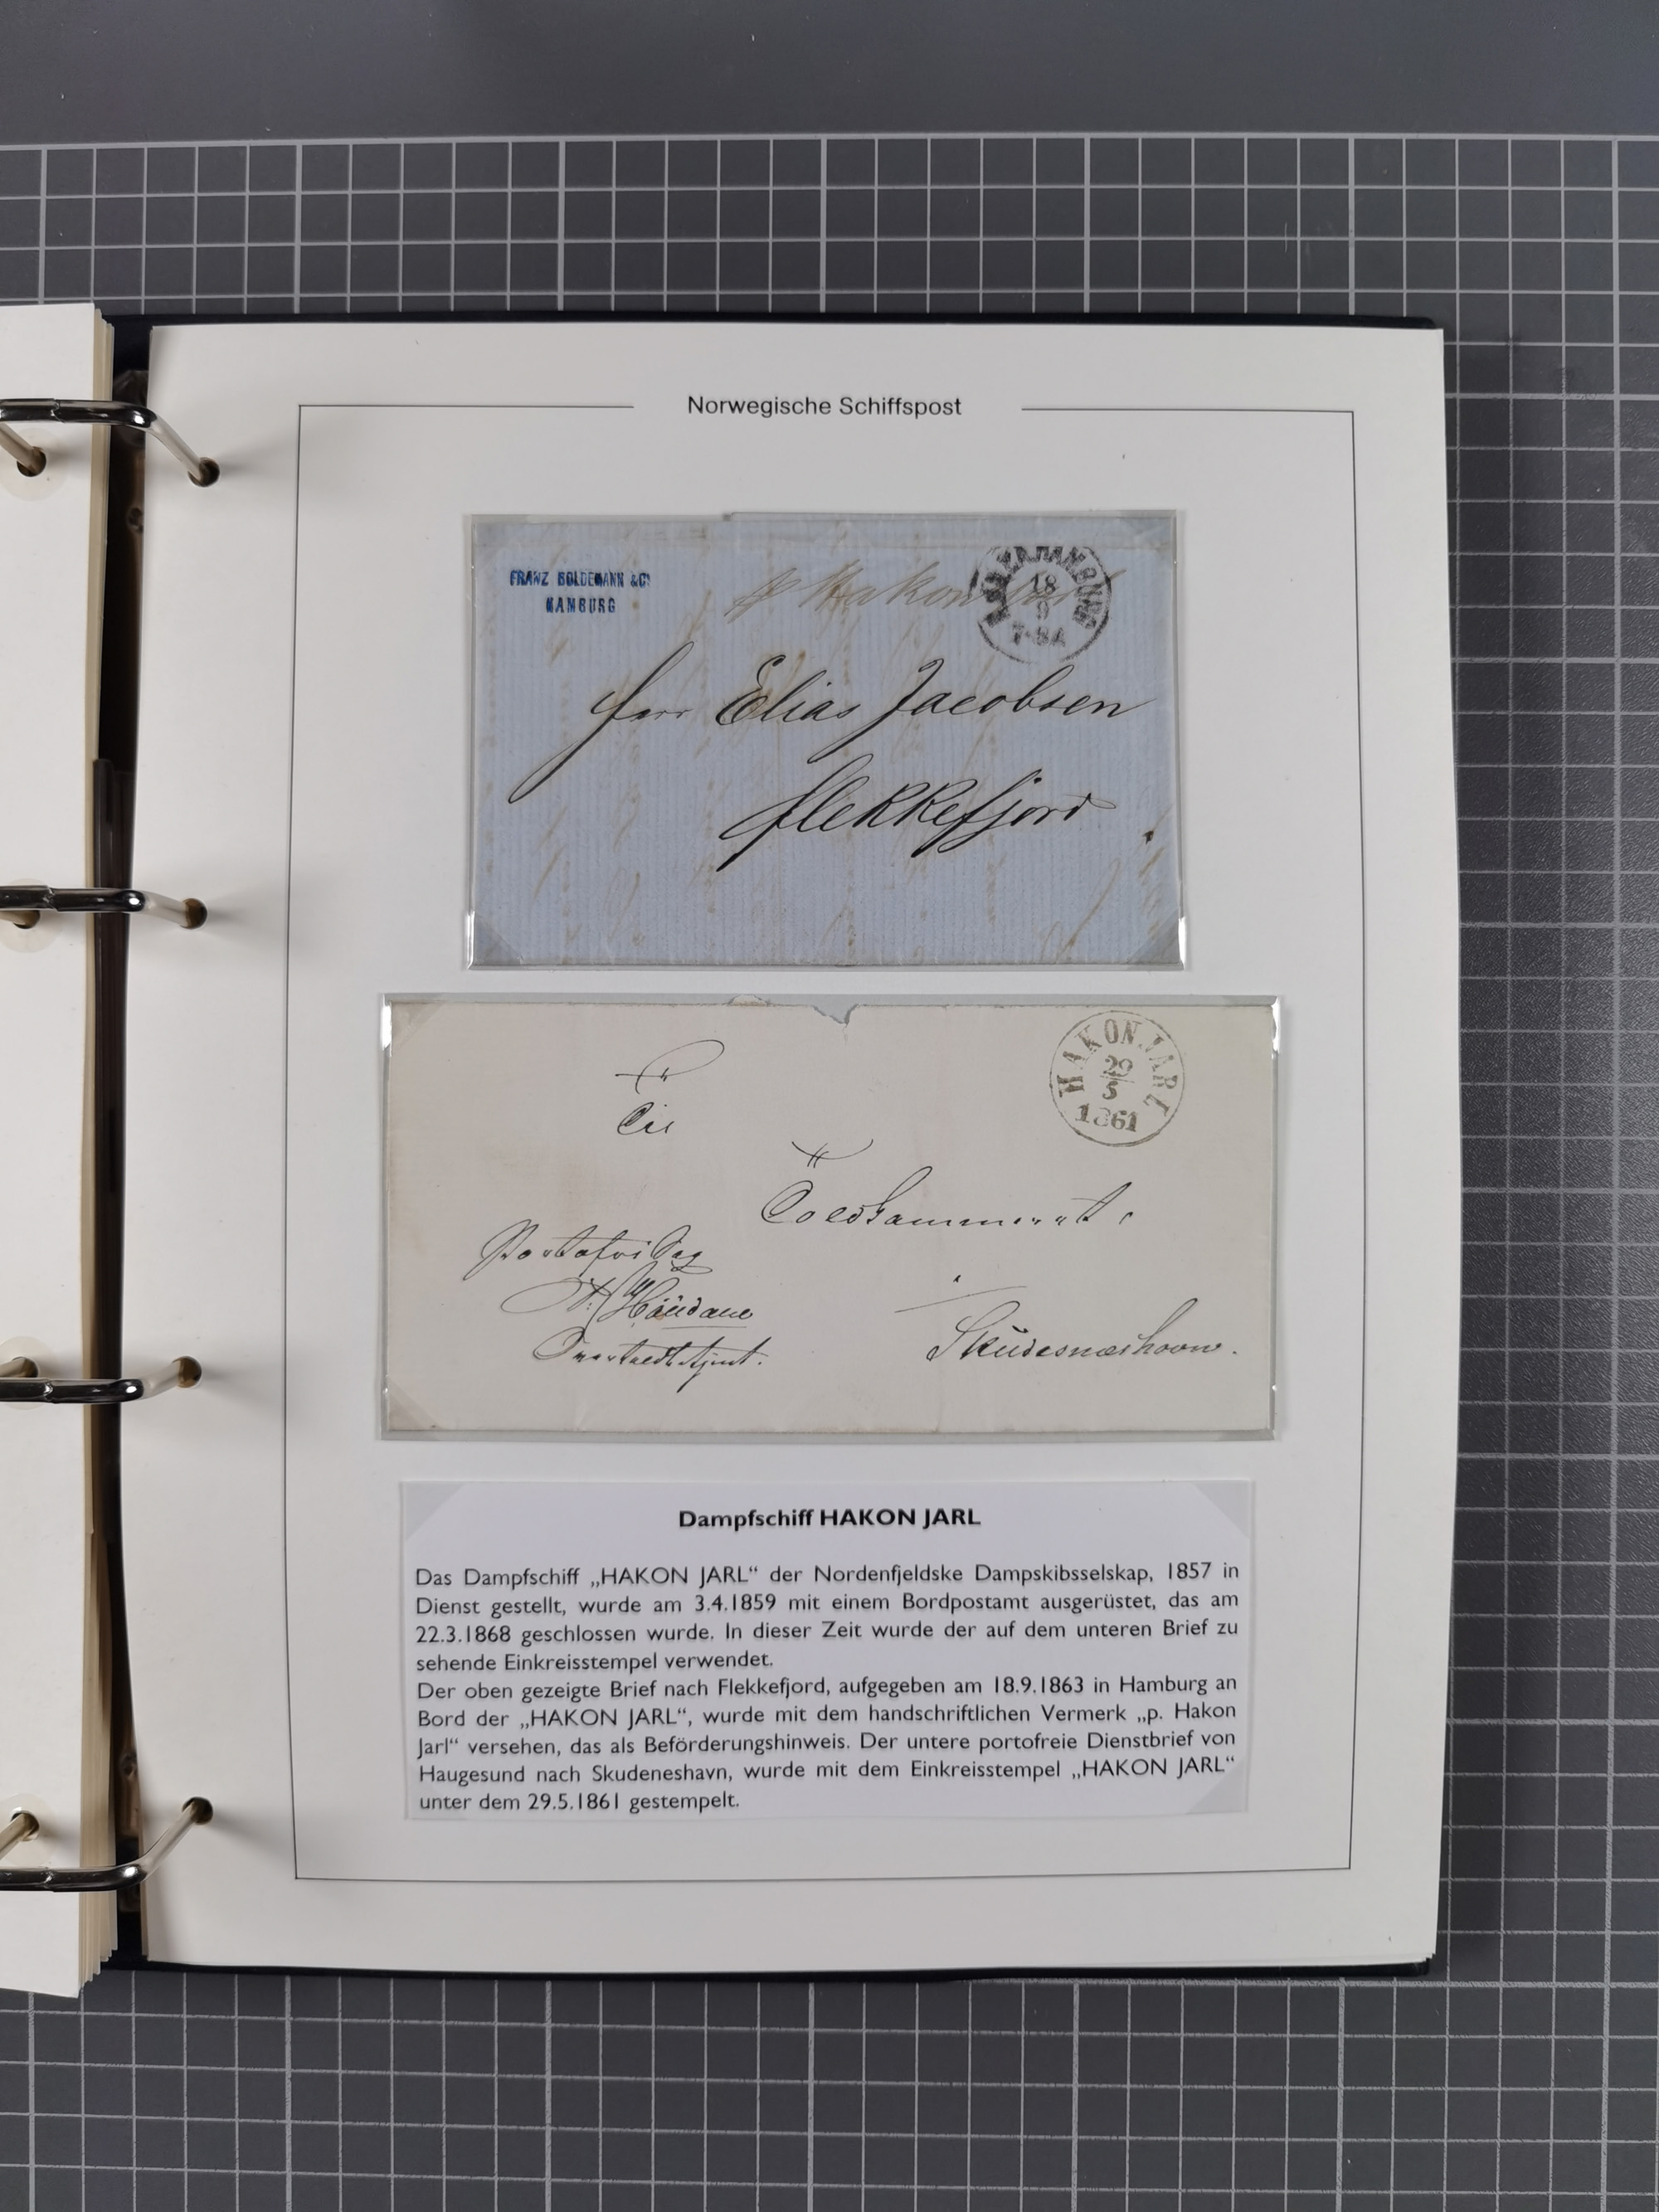 Norwegische Schiffspost
FRANZ BOLDEMANN & Co
HAMBURG
p Hakon Jarl
HAMBURG
18
9
7-8A
Herr Elias Jacobsen
Flekkefjord
HAKON JARL
29
5
1861
Til
Toldkammeret
Portofri Sag
i
Skudesnæshavn.
Dampfschiff HAKON JARL
Das Dampfschiff „HAKON JARL“ der Nordenfjeldske Dampskibsselskap, 1857 in
Dienst gestellt, wurde am 3.4.1859 mit einem Bordpostamt ausgerüstet, das am
22.3.1868 geschlossen wurde. In dieser Zeit wurde der auf dem unteren Brief zu
sehende Einkreisstempel verwendet.
Der oben gezeigte Brief nach Flekkefjord, aufgegeben am 18.9.1863 in Hamburg an
Bord der „HAKON JARL“, wurde mit dem handschriftlichen Vermerk „p. Hakon
Jarl“ versehen, das als Beförderungshinweis. Der untere portofreie Dienstbrief von
Haugesund nach Skudeneshavn, wurde mit dem Einkreisstempel „HAKON JARL“
unter dem 29.5.1861 gestempelt.